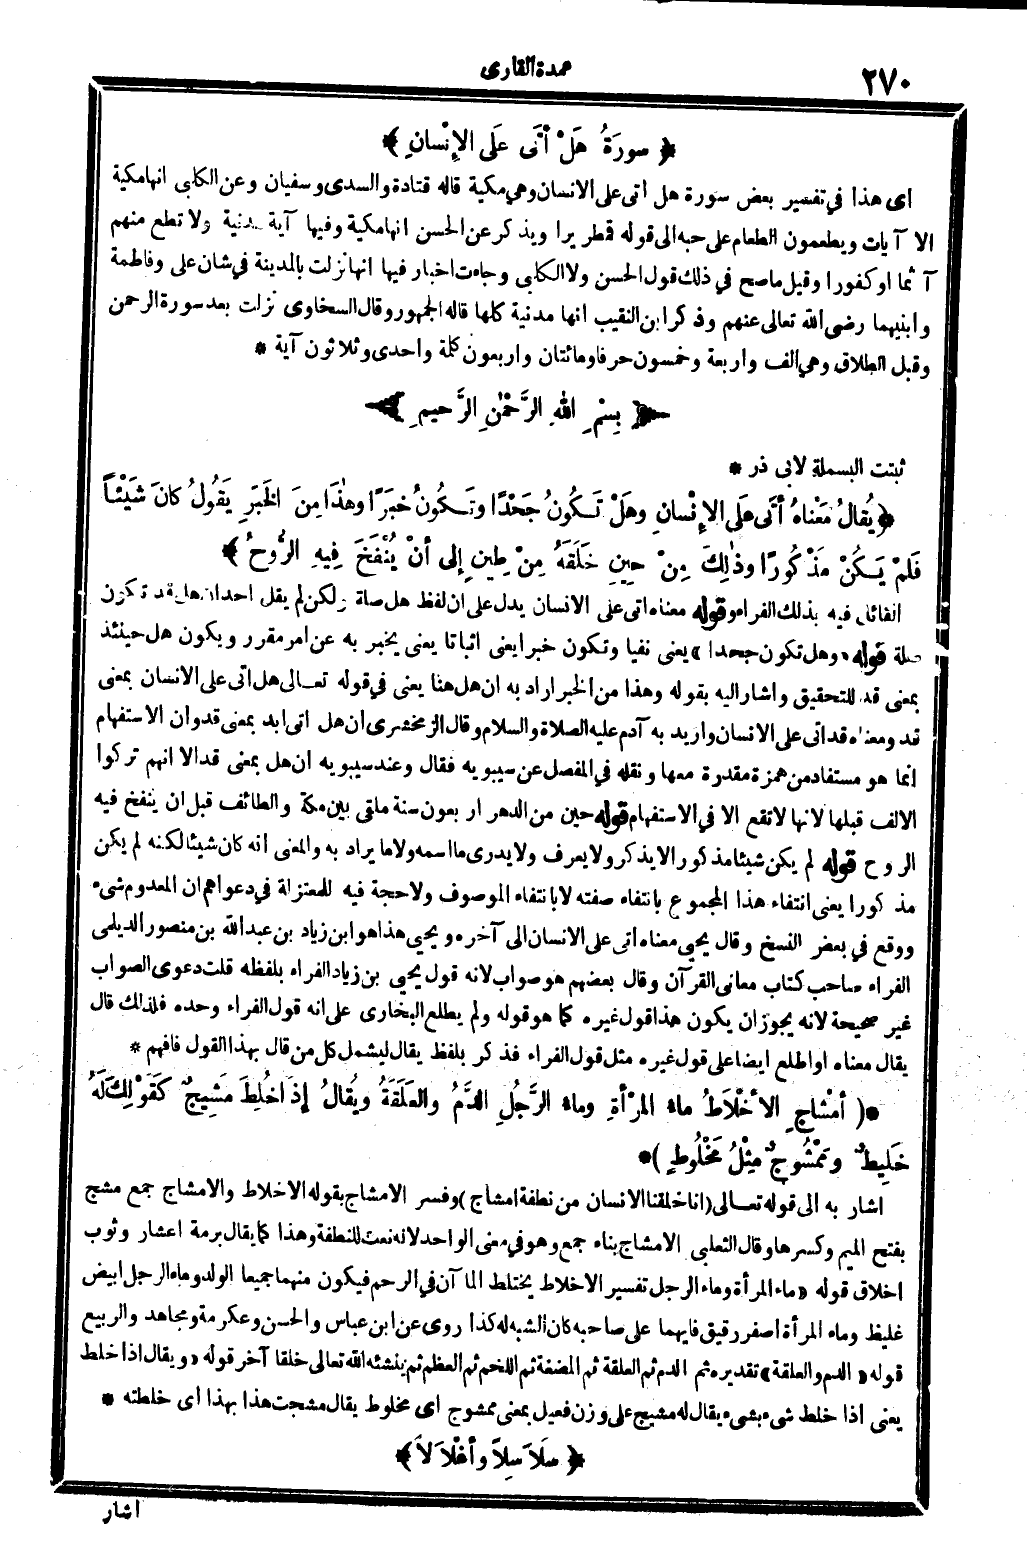 ٢٧٠
عمدة القارى
﴿ سورَةُ هَلْ أتَى عَلَى الإِنْسانِ ﴾
اى هذا فى تفسير بعض سورة هل اتى على الانسان وهى مكية قاله قتادة والسدى وسفيان وعن الكلبى انها مكية
الا آيات ويطعمون الطعام على حبه الى قوله قمطريرا ويذكر عن الحسن انها مكية وفيها آية مدنية ولا تطع منهم
آثما او كفورا وقيل ما صح فى ذلك قول الحسن ولا الكلبى وجاءت اخبار فيها انها نزلت بالمدينة فى شان على وفاطمة
وابنيهما رضى الله تعالى عنهم وذكر ابن النقيب انها مدنية كلها قاله الجمهور وقال السخاوى نزلت بعد سورة الرحمن
وقبل الطلاق وهى الف واربعة وخمسون حرفا ومائتان واربعون كلمة واحدى وثلاثون آية *
﴿ بِسْمِ اللهِ الرَّحْمٰنِ الرَّحيمِ ﴾
ثبتت البسملة لابى ذر *
﴿ يُقالُ مَعْناهُ أتَى عَلَى الإِنْسانِ وهَلْ تَكُونُ جَحْدًا وتَكُونُ خبَرًا وهٰذَا مِنَ الخَبَرِ يَقُولُ كانَ شَيْئًا
فَلَمْ يَكُنْ مَذْكُورًا وذٰلِكَ مِنْ حِينِ خَلَقَهُ مِنْ طِينٍ إلى أنْ يُنْفَخَ فِيهِ الرُّوحُ ﴾
القائل فيه بذلك الفراء وقوله معناه اتى على الانسان يدل على ان لفظ هل صلة ولكن لم يقل احد ان هل قد تكون
صلة قوله «وهل تكون جحدا» يعنى نفيا وتكون خبرا يعنى اثباتا يعنى يخبر به عن امر مقرر ويكون هل حينئذ
بمعنى قد للتحقيق واشار اليه بقوله وهذا من الخبر اراد به ان هل هنا يعنى فى قوله تعالى هل اتى على الانسان بمعنى
قد ومعناه قد اتى على الانسان واريد به آدم عليه الصلاة والسلام وقال الزمخشرى ان هل اتى ابد بمعنى قد وان الاستفهام
انما هو مستفاد من همزة مقدرة معها ونقله فى المفصل عن سيبويه فقال وعند سيبويه ان هل بمعنى قد الا انهم تركوا
الالف قبلها لانها لا تقع الا فى الاستفهام قوله حين من الدهر اربعون سنة ملقى بين مكة والطائف قبل ان ينفخ فيه
الروح قوله لم يكن شيئا مذكورا لا يذكر ولا يعرف ولا يدرى ما اسمه ولا ما يراد به والمعنى انه كان شيئا لكنه لم يكن
مذكورا يعنى انتفاء هذا المجموع بانتفاء صفته لا بانتفاء الموصوف ولا حجة فيه للمعتزلة فى دعواهم ان المعدوم شىء
ووقع فى بعض النسخ وقال يحيى معناه اتى على الانسان الى آخره ويحيى هذا هو ابن زياد بن عبد الله بن منصور الديلمى
الفراء صاحب كتاب معانى القرآن وقال بعضهم هو صواب لانه قول يحيى بن زياد الفراء بلفظه قلت دعوى الصواب
غير صحيحة لانه يجوز ان يكون هذا قول غيره كما هو قوله ولم يطلع البخارى على انه قول الفراء وحده فلذلك قال
يقال معناه او اطلع ايضا على قول غيره مثل قول الفراء فذكر بلفظ يقال ليشمل كل من قال بهذا القول فافهم *
*( أمْشاجٍ الأخْلاَطُ ماءُ المرْأةِ وماءُ الرَّجُلِ الدَّمُ والعَلَقَةُ ويُقالُ إذَا خُلِطَ مَشِيجٌ كَقَوْلِكَ لَهُ
خَلِيطٌ ومَمْشُوجٌ مِثْلُ مَخْلُوطٍ )*
اشار به الى قوله تعالى (انا خلقنا الانسان من نطفة امشاج) وفسر الامشاج بقوله الاخلاط والامشاج جمع مشج
بفتح الميم وكسرها وقال الثعلبى الامشاج بناء جمع وهو فى معنى الواحد لانه نعت للنطفة وهذا كما يقال برمة اعشار وثوب
اخلاق قوله «ماء المرأة وماء الرجل تفسير الاخلاط يختلط الماآن فى الرحم فيكون منهما جميعا الولد وماء الرجل ابيض
غليظ وماء المرأة اصفر رقيق فايهما على صاحبه كان الشبه له كذا روى عن ابن عباس والحسن وعكرمة ومجاهد والربيع
قوله «الدم والعلقة» تقديره ثم الدم ثم العلقة ثم المضغة ثم اللحم ثم العظم ثم ينشئه الله تعالى خلقا آخر قوله «ويقال اذا خلط
يعنى اذا خلط شىء بشىء يقال له مشيج على وزن فعيل بمعنى ممشوج اى مخلوط يقال مشجت هذا بهذا اى خلطته *
﴿ سَلاَسِلاً وأغْلاَلاً ﴾
اشار